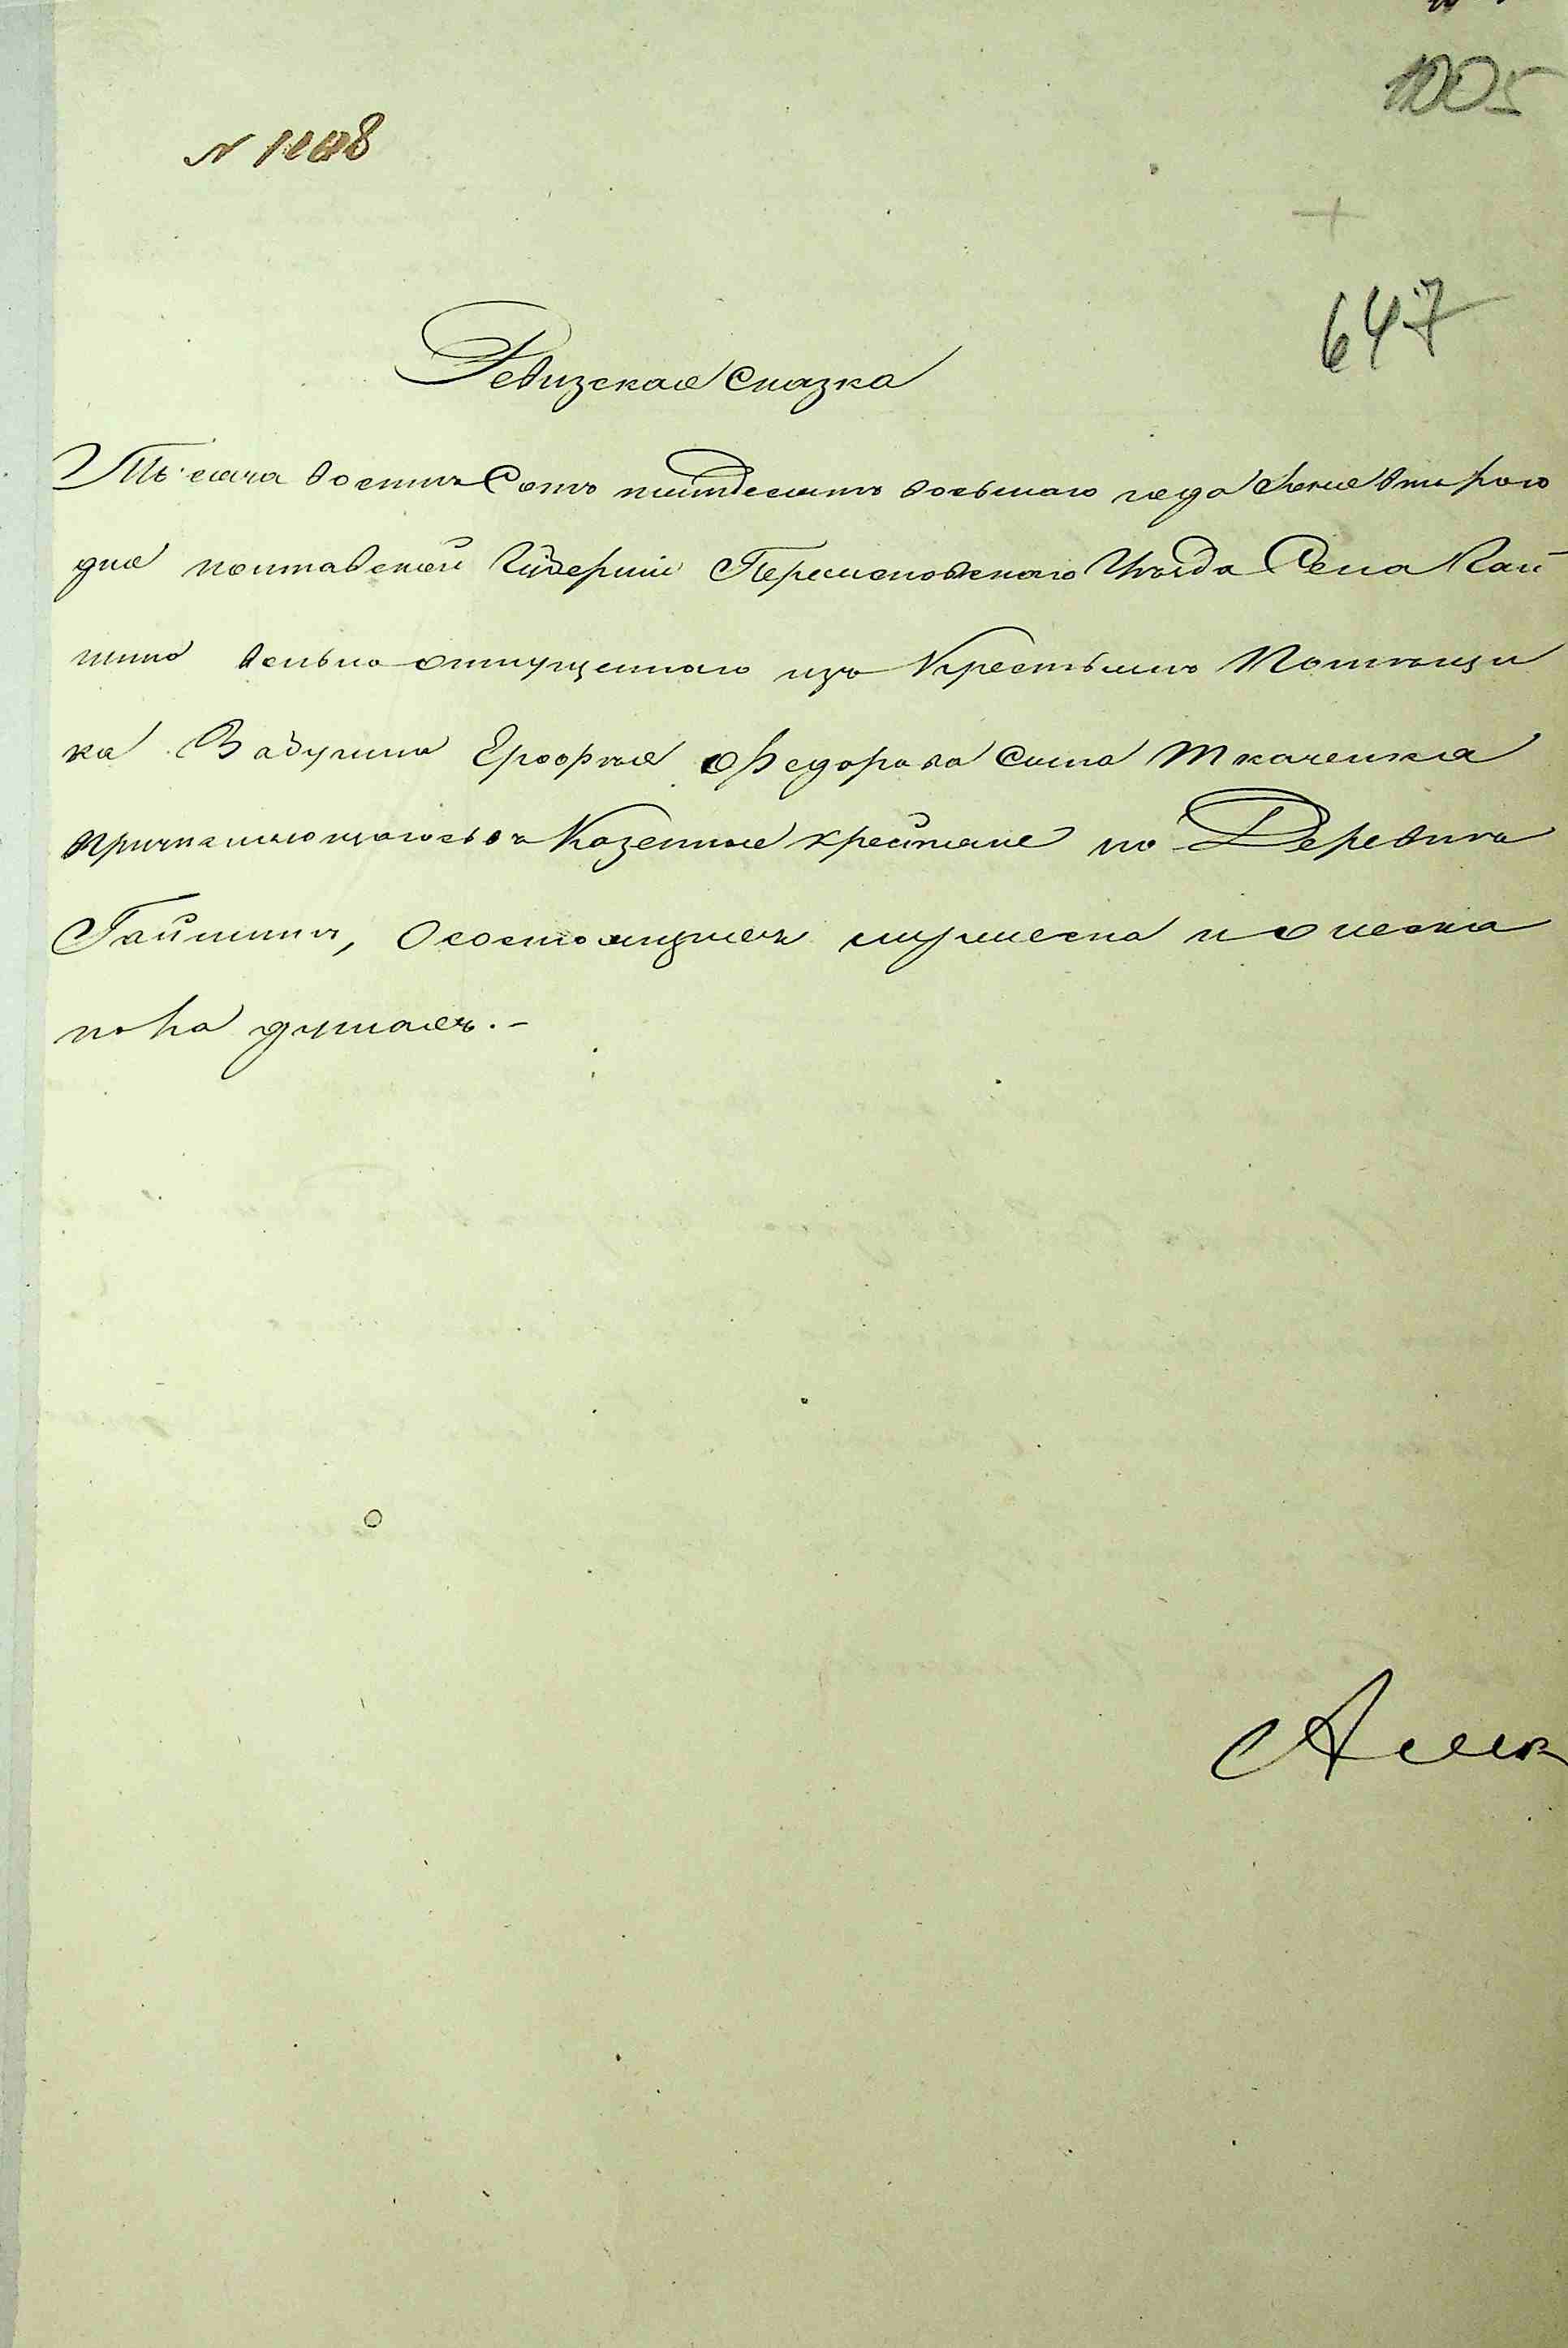 1005
N 1008
647
Ревизская Сказка
Тысяча восемь Сотъ пятдесятъ восьмаго года Июня втораго
дня полтавской Губерніи Переясловскаго Уѣзда Села Кай
вольно отпущеннаго изъ Крестьянъ Помѣщи
ка Ерофѣя Федорова Сына Ткаченка
причисляющагося въ Казенные крестяне по Деревнѣ
Гайшинъ, О состоящихъ мужеска и женска
пола душахъ.-